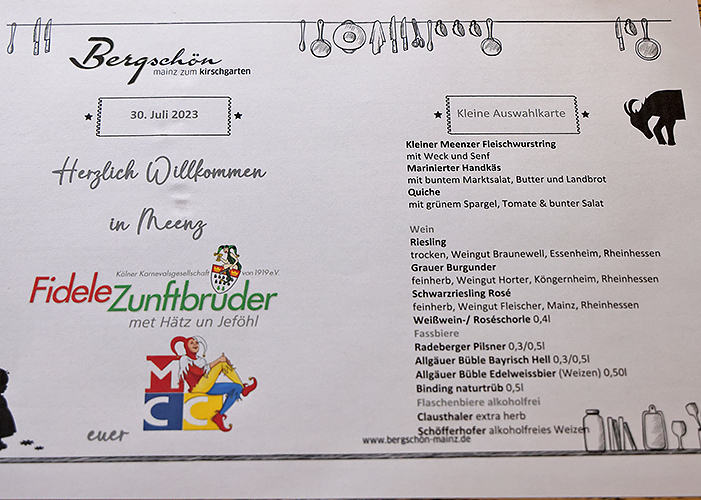 Bergschön
mainz zum kirschgarten
30. Juli 2023
Herzlich Willkommen
in Meenz
Kölner Karnevalsgesellschaft von 1919 e.V.
Fidele Zunftbrüder
met Hätz un Jeföhl
M A
C C
euer
Kleine Auswahlkarte
Kleiner Meenzer Fleischwurstring
mit Weck und Senf
Marinierter Handkäs
mit buntem Marktsalat, Butter und Landbrot
Quiche
mit grünem Spargel, Tomate & bunter Salat
Wein
Riesling
trocken, Weingut Braunewell, Essenheim, Rheinhessen
Grauer Burgunder
feinherb, Weingut Horter, Köngernheim, Rheinhessen
Schwarzriesling Rosé
feinherb, Weingut Fleischer, Mainz, Rheinhessen
Weißwein-/ Roséschorle 0,4l
Fassbiere
Radeberger Pilsner 0,3/0,5l
Allgäuer Büble Bayrisch Hell 0,3/0,5l
Allgäuer Büble Edelweissbier (Weizen) 0,50l
Binding naturtrüb 0,5l
Flaschenbiere alkoholfrei
Clausthaler extra herb
Schöfferhofer alkoholfreies Weizen
www.bergschön-mainz.de